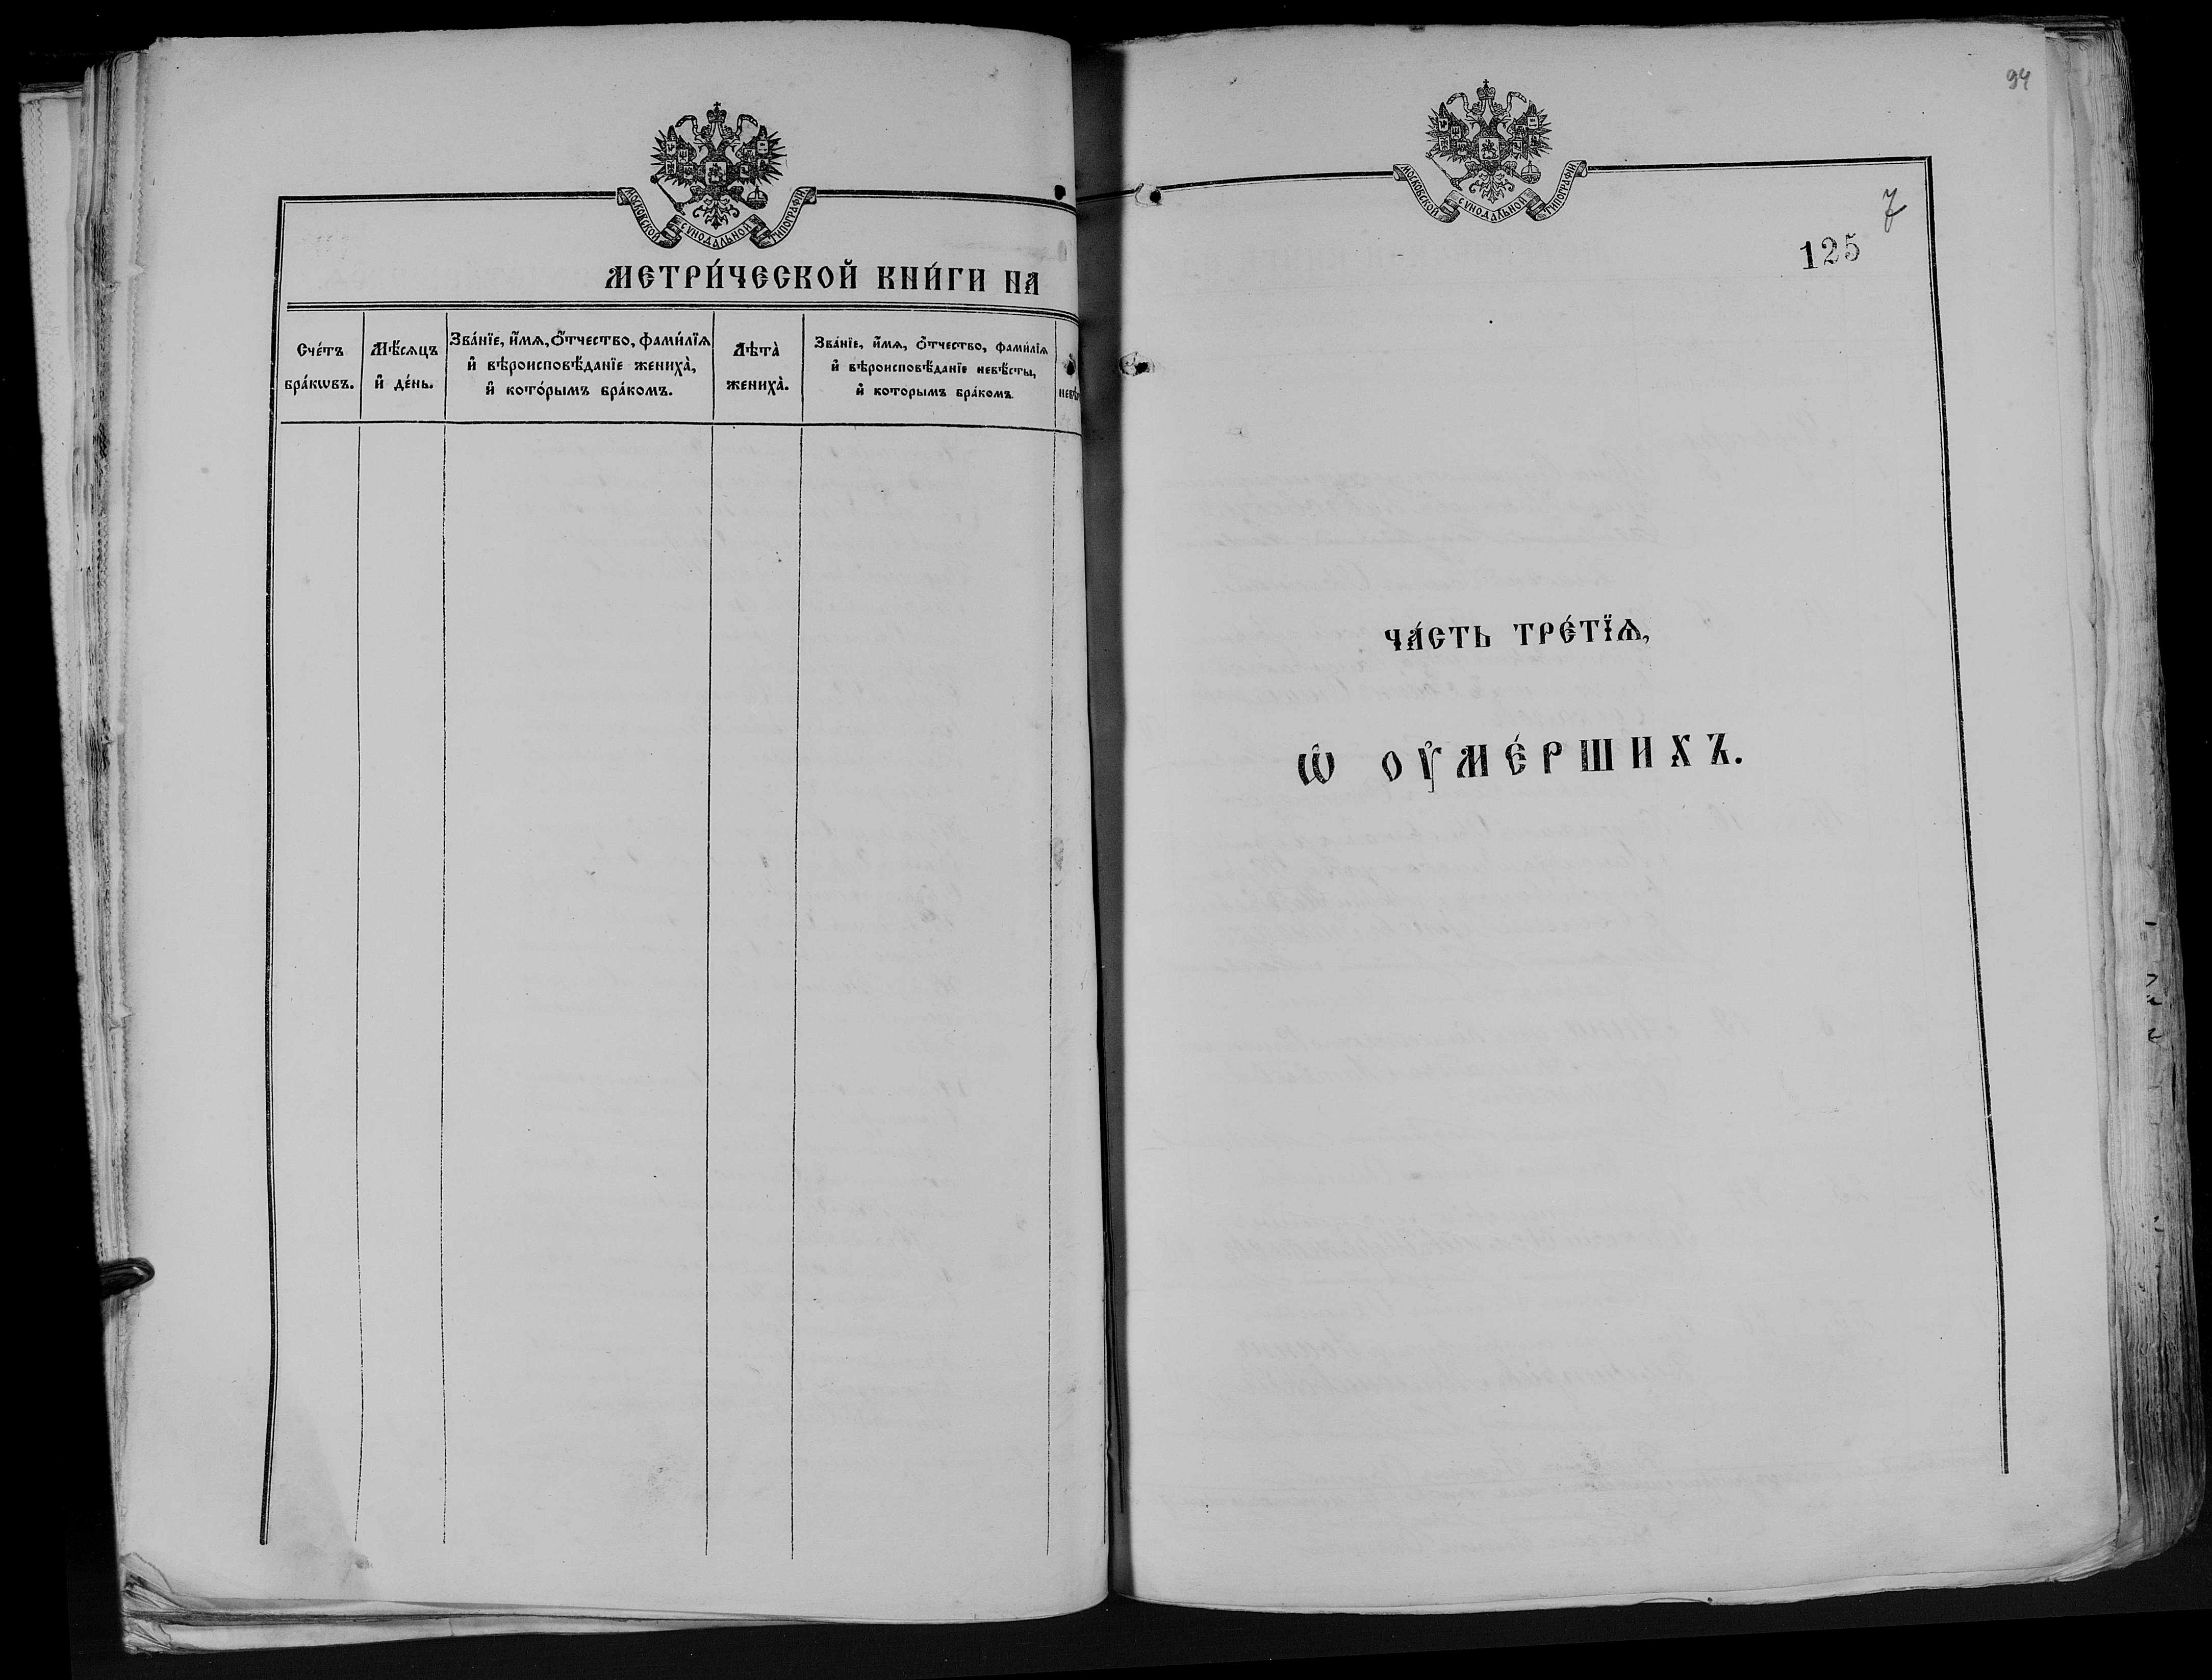 МОСКОВСКОЙ СѴНОДАЛЬНОЙ ТИПОГРАФІИ
МЕТРИ́ЧЕСКОЙ КНИ́ГИ НА
Сче́тъ
бра́кѡвъ.
Мѣ́сѧцъ
и҆ де́нь.
Зва́нїе, и҆́мѧ, ѻ҆́тчество, фами́лїѧ
и҆ вѣроисповѣ́данїе женихà,
и҆ кото́рымъ бра́комъ.
Лѣтà
женихà.
Зва́нїе, и҆́мѧ, ѻ҆́тчество, фами́лїѧ
и҆ вѣроисповѣ́данїе невѣ́сты,
и҆ которымъ бра́комъ.
94
МОСКОВСКОЙ СѴНОДАЛЬНОЙ ТИПОГРАФІИ
7
125
ЧА́СТЬ ТРЕ́ТЇѦ,
Ѽ ОУ҆МЕ́РШИХЪ.